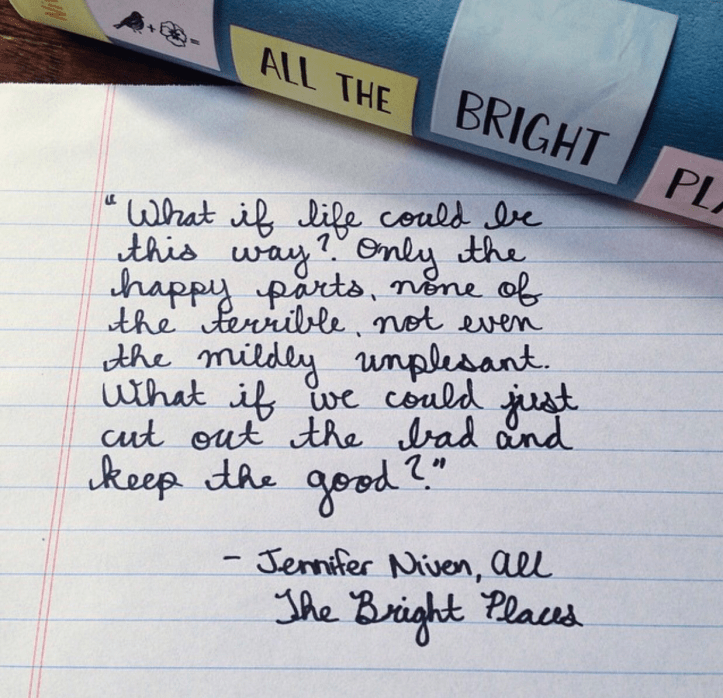 ALL THE BRIGHT PLA
"What if life could be
this way? Only the
happy parts, none of
the terrible, not even
the mildly unplesant.
What if we could just
cut out the bad and
keep the good?"
- Jennifer Niven, All
The Bright Places